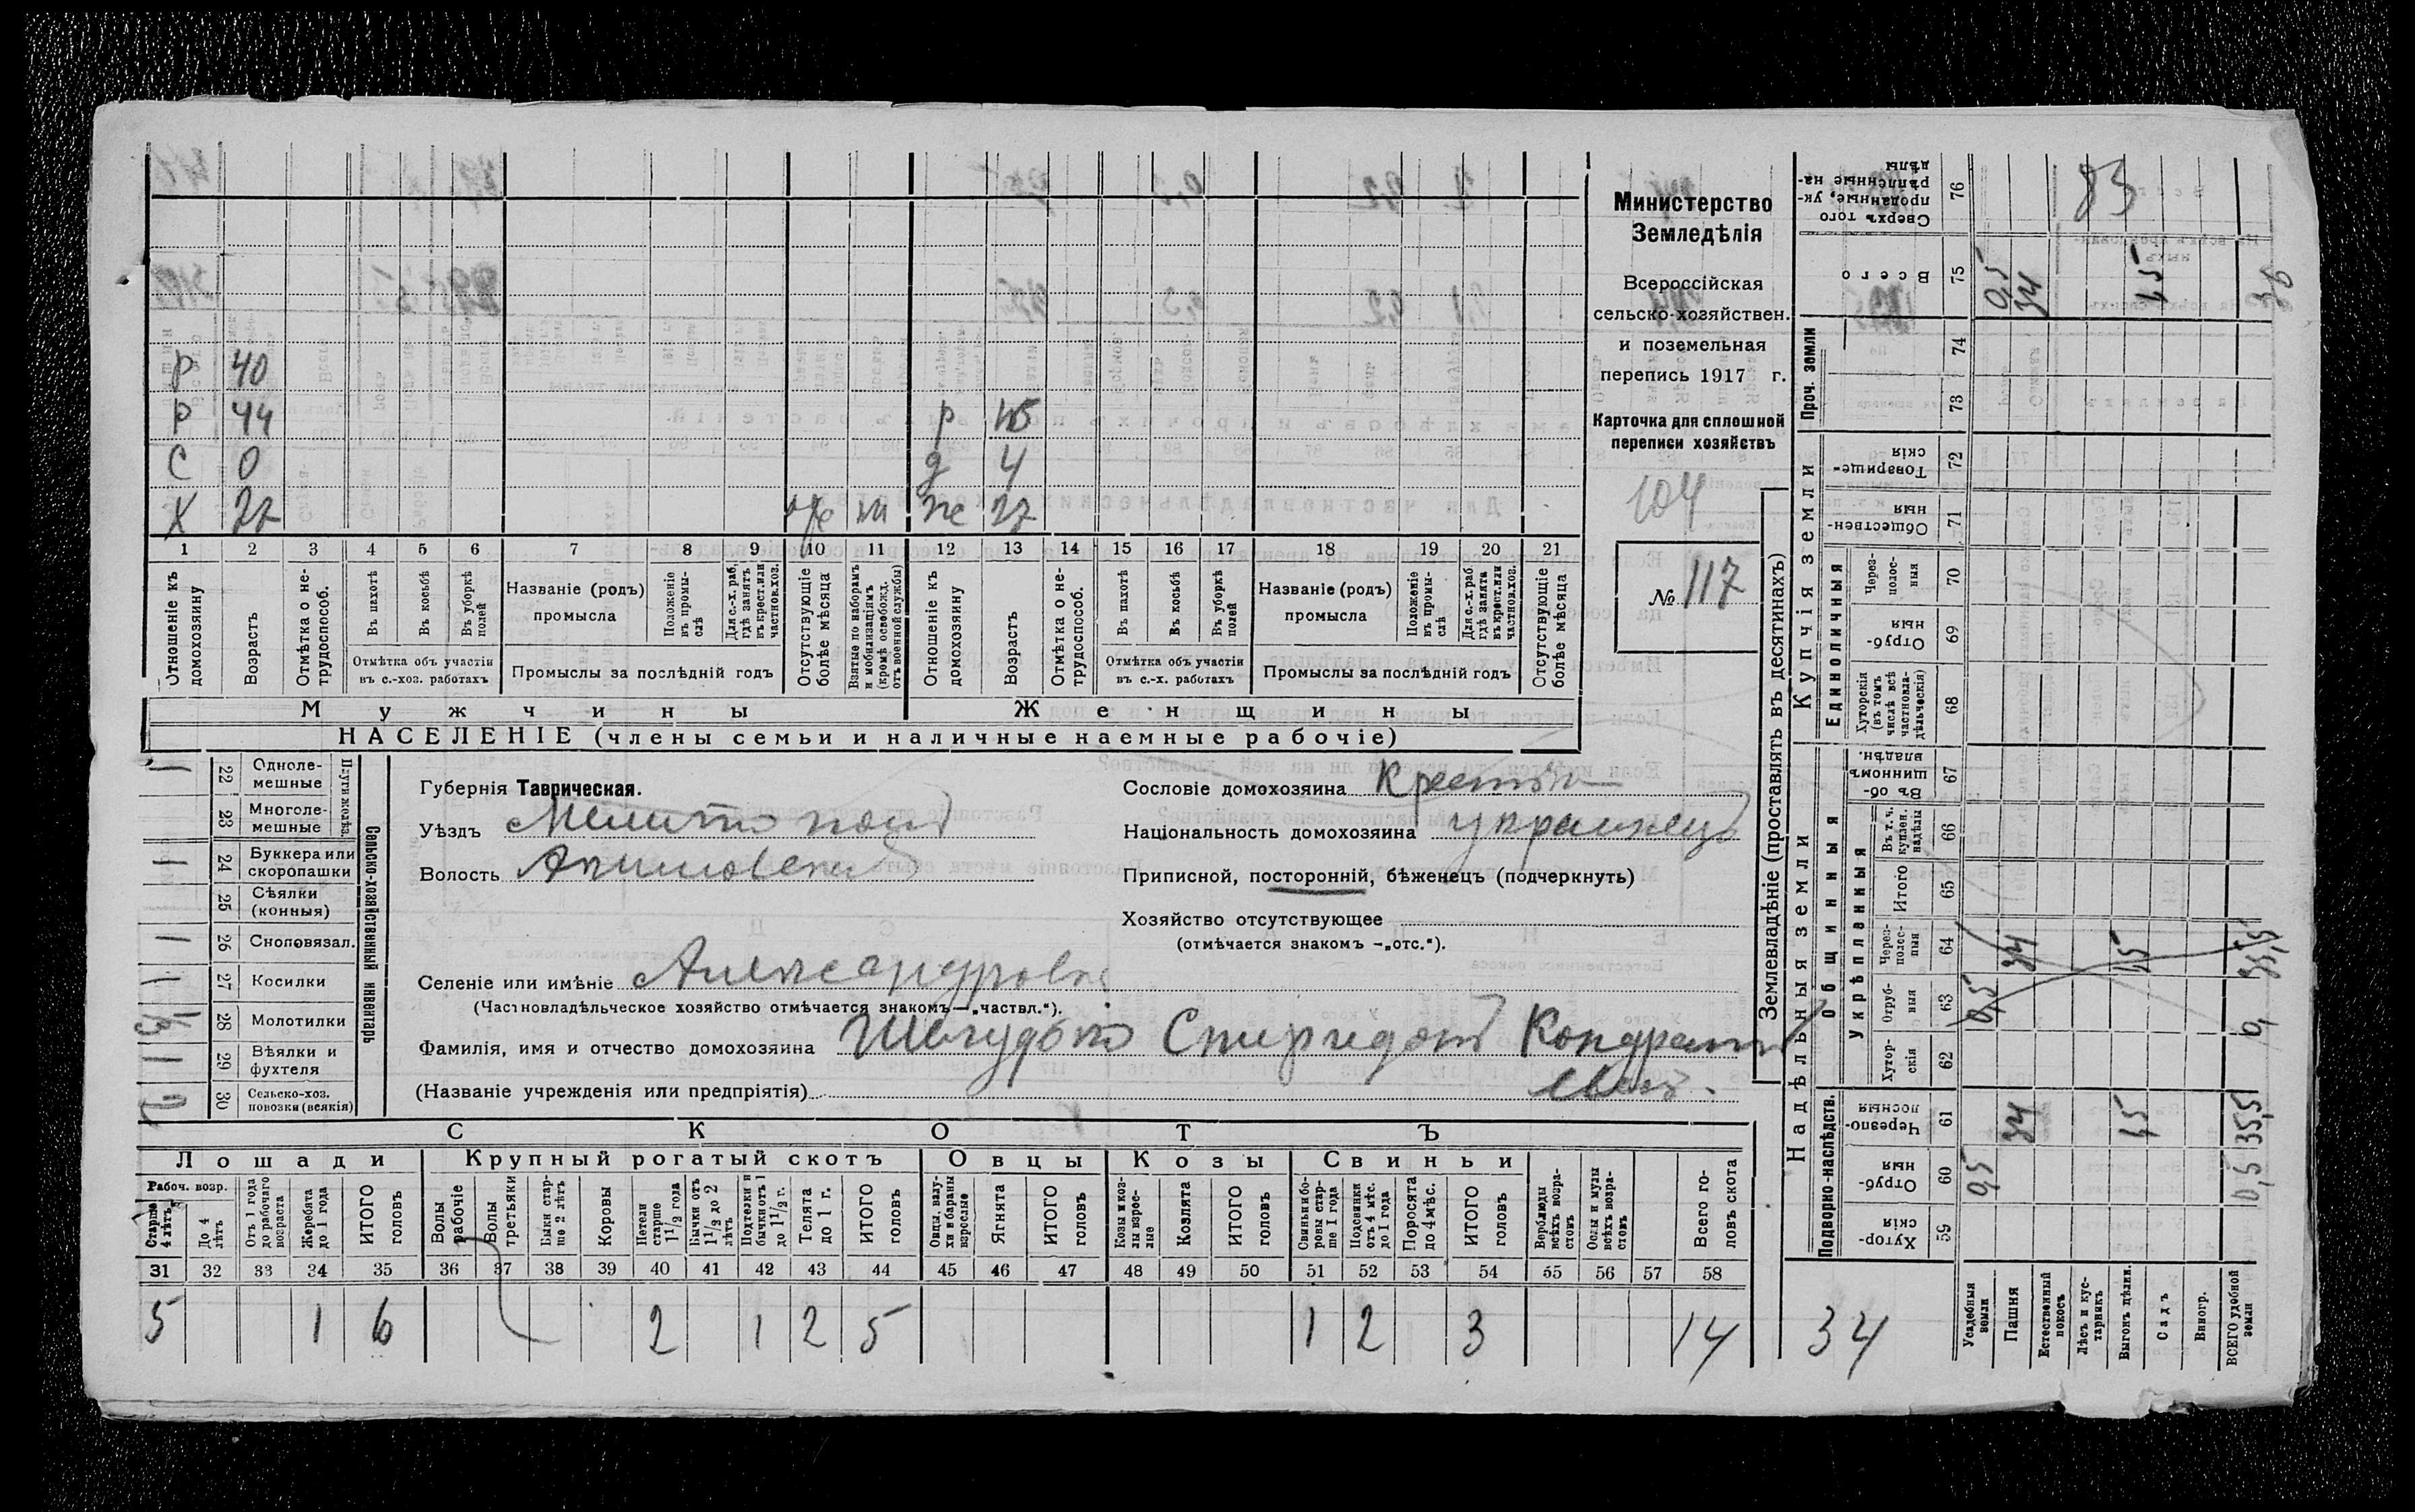 Министерство
Земледѣлія
Всероссійская
сельско-хозяйствен.
и поземельная
перепись 1917 г.
Карточка для сплошной
переписи хозяйствъ
104
№ 117
Р 40
Р 44 р 15
С 0 д 4
Х 27 же 27
1 2 3 4 5 6 7 8 9 10 11 12 13 14 15 16 17 18 19 20 21
Отношеніе къ домохозяину
Возрастъ
Отмѣтка о не-трудоспособ.
Въ пахотѣ
Въ косьбѣ
Въ уборкѣ полей
Отмѣтка объ участіи
въ с.-хоз. работахъ
Названіе (родъ)
промысла
Положеніе въ промы-слѣ
Для с.-х. раб, гдѣ занятъ въ крест. или частнов. хоз.
Промыслы за послѣдній годъ
Отсутствующіе болѣе мѣсяца
Взятые по наборамъ и мобилизаціямъ (кромѣ освобожд. отъ военной службы)
Отношеніе къ домохозяину
Возрастъ
Отмѣтка о не-трудоспособ.
Въ пахотѣ
Въ косьбѣ
Въ уборкѣ полей
Отмѣтка объ участіи
въ с.-х. работахъ
Названіе (родъ)
промысла
Положеніе въ промы-слѣ
Для с.-х. раб гдѣ занята въ крест. или частнов. хоз.
Промыслы за послѣдній годъ
Отсутствующіе болѣе мѣсяца
Мужчины Женщины
НАСЕЛЕНІЕ (члены семьи и наличные наемные рабочіе)
Сельско-хозяйственный инвентарь
1 22 Одноле-мешные
23 Многоле-мешные
1 24 Буккера или скоропашки
25 Сѣялки (конныя)
1 26 Сноповязал.
1 27 Косилки
28 Молотилки
1 29 Вѣялки и фухтеля
2 30 Сельско-хоз. повозки (всякія)
Губернія Таврическая.
Уѣздъ Мелитопол
Волость Акимовская
Сословіе домохозяина Крестьян
Національность домохозяина украинецъ
Приписной, посторонній, бѣженецъ (подчеркнуть)
Хозяйство отсутствующее
(отмѣчается знакомъ -„отс.“).
Селеніе или имѣніе Александровка
(Частновладѣльческое хозяйство отмѣчается знакомъ—„частвл.“).
Фамилія, имя и отчество домохозяина Шелудько Спиридонъ Кондрать
евичъ.
(Названіе учрежденія или предпріятія)
СКОТЪ
Лошади Крупный рогатый скотъ Овцы Козы Свиньи
Рабоч. возр.
Старше 4 лѣтъ
До 4 лѣтъ
Отъ 1 года до рабочаго возраста
Жеребята до 1 года
ИТОГО головъ
Волы рабочіе
Волы третьяки
Быки стар-ше 2 лѣтъ
Коровы
Нетели старше 1 1/2 года
Бычки отъ 1 1/2 до 2 лѣтъ
Подтелки и бычки отъ 1 до 1 1/2 г.
Телята до 1 г.
ИТОГО головъ
Овцы, валу-хи и бараны взрослые
Ягнята
ИТОГО головъ
Козы и коз-лы взрос-лые
Козлята
ИТОГО головъ
Свиньи и бо-ровы стар-ше 1 года
Подсвинки отъ 4 мѣс. до 1 года
Поросята до 4 мѣс.
ИТОГО головъ
Верблюды всѣхъ возра-стовъ
Ослы и мулы всѣхъ возра-стовъ
Всего го-ловъ скота
31 32 33 34 35 36 37 38 39 40 41 42 43 44 45 46 47 48 49 50 51 52 53 54 55 56 57 58
5 1 6 2 1 2 5 1 2 3 14
Землевладѣніе (проставлять въ десятинахъ)
Надѣльныя земли
Купчія земли
Проч. земли
Подворно-наслѣдств.
Общинныя
Укрѣпленныя
Единоличныя
Сверхъ того проданные, ук-рѣпленные на-дѣлы 76 83
Всего 75 0,5 34 1,5 36
74
73
Товарище-скія 72
Обществен-ныя 71
Через-полос-ныя 70
Отруб-ныя 69
Хуторскія (въ томъ числѣ всѣ частновла-дѣльческія) 68
Въ об-щинномъ владѣн. 67
Въ т. ч. куплен. надѣлы 66
Итого 65
Через-полос-ныя 64 34 1,5 35,5
Отруб-ныя 63 0,5
Хутор-скія 62
Черезпо-лосныя 61 34 1,5 35,5
Отруб-ныя 60 0,5 0,5
Хутор-скія 59
34
Усадебныя земли
Пашня
Естественный покосъ
Лѣсъ и кус-тарникъ
Выгонъ цѣлин.
Садъ
Виногр.
ВСЕГО удобной земли